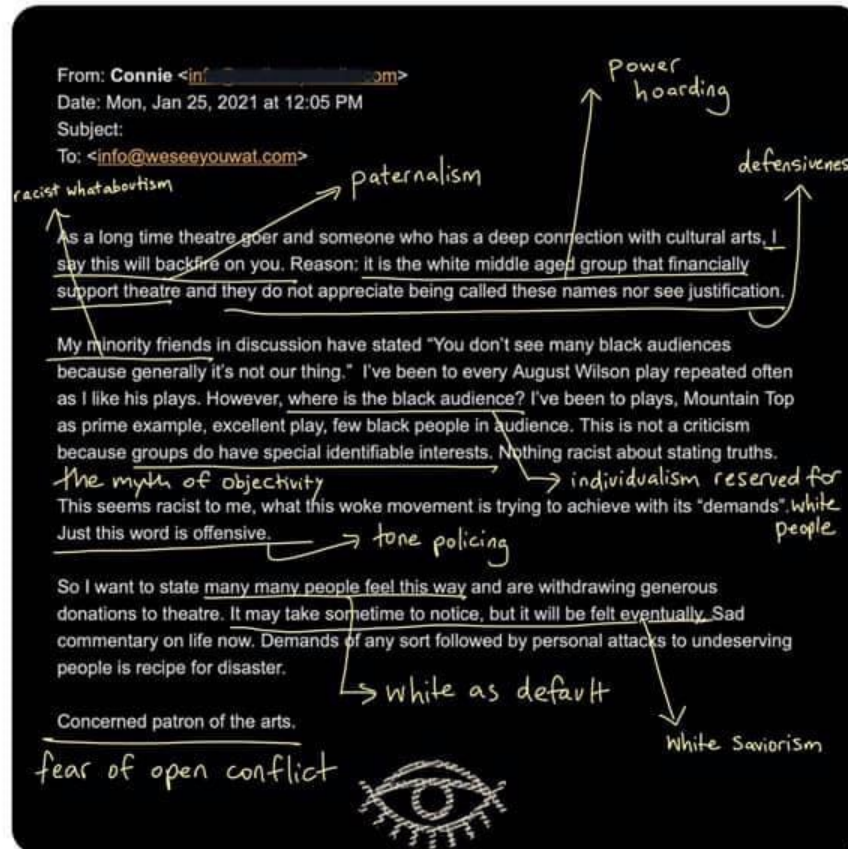 From: Connie <in
om>
power
hoarding
Date: Mon, Jan 25, 2021 at 12:05 PM
Subject:
To: <info@weseeyouwat.com>
defensivenes
racist whataboutism
paternalism
As a long time theatre goer and someone who has a deep connection with cultural arts, I
say this will backfire on you. Reason: it is the white middle aged group that financially
support theatre and they do not appreciate being called these names nor see justification.
My minority friends in discussion have stated "You don't see many black audiences
because generally it's not our thing." I've been to every August Wilson play repeated often
as I like his plays. However, where is the black audience? I've been to plays, Mountain Top
as prime example, excellent play, few black people in audience. This is not a criticism
because groups do have special identifiable interests. Nothing racist about stating truths.
the myth of objectivity
individualism reserved for
white
people
This seems racist to me, what this woke movement is trying to achieve with its "demands".
Just this word is offensive.
tone policing
So I want to state many many people feel this way and are withdrawing generous
donations to theatre. It may take sometime to notice, but it will be felt eventually. Sad
commentary on life now. Demands of any sort followed by personal attacks to undeserving
people is recipe for disaster.
white as default
Concerned patron of the arts.
White Saviorism
fear of open conflict